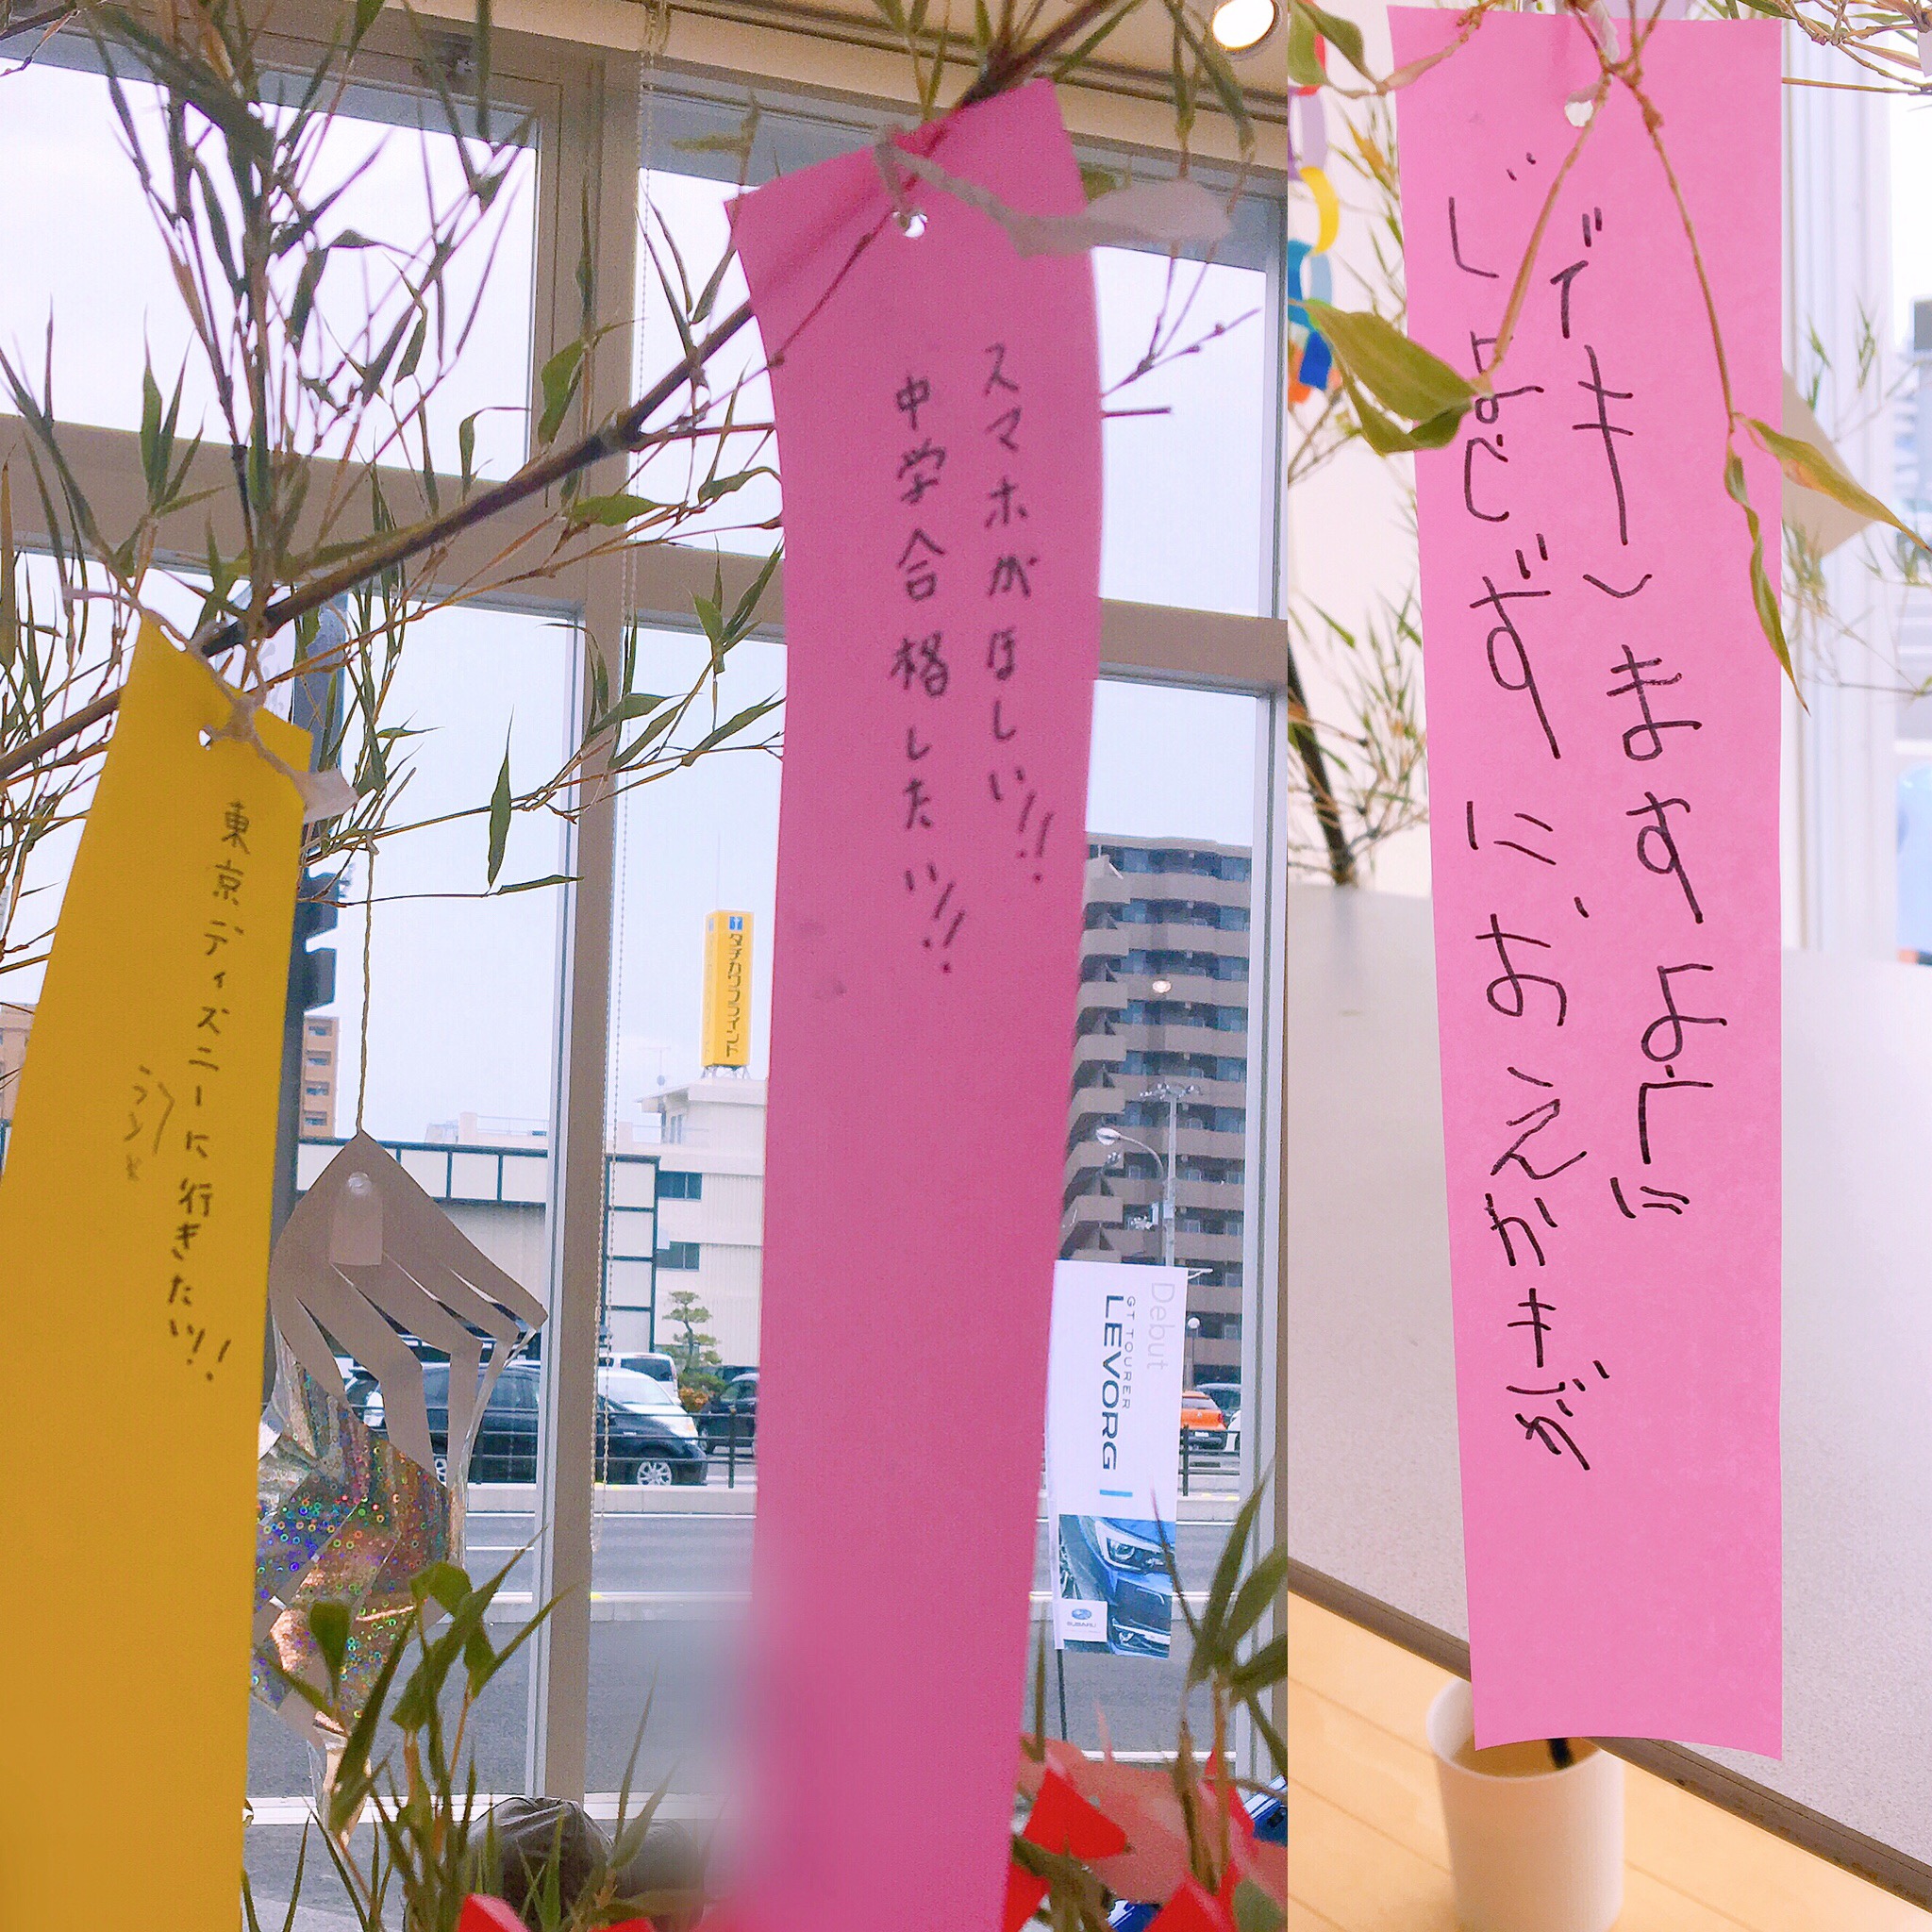 東京ディズニーに行きたい!!
ランド
スマホがほしい!!
中学合格したい!!
じょじずにおえかきが
できますように
タチカワブラインド
Debut
GT TOURER
LEVORG
SUBARU